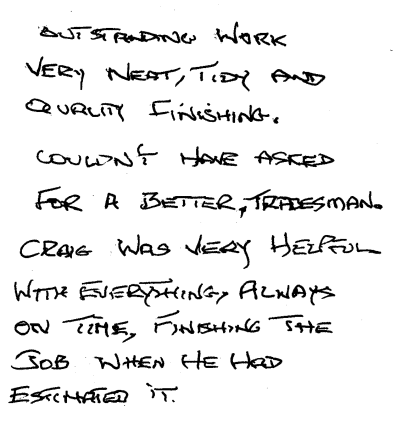 OUTSTANDING WORK
VERY NEAT, TIDY AND
QUALITY FINISHING.
COULDN'T HAVE ASKED
FOR A BETTER, TRADESMAN.
CRAIG WAS VERY HELPFUL
WITH EVERYTHING, ALWAYS
ON TIME, FINISHING THE
JOB WHEN HE HAD
ESTIMATED IT.